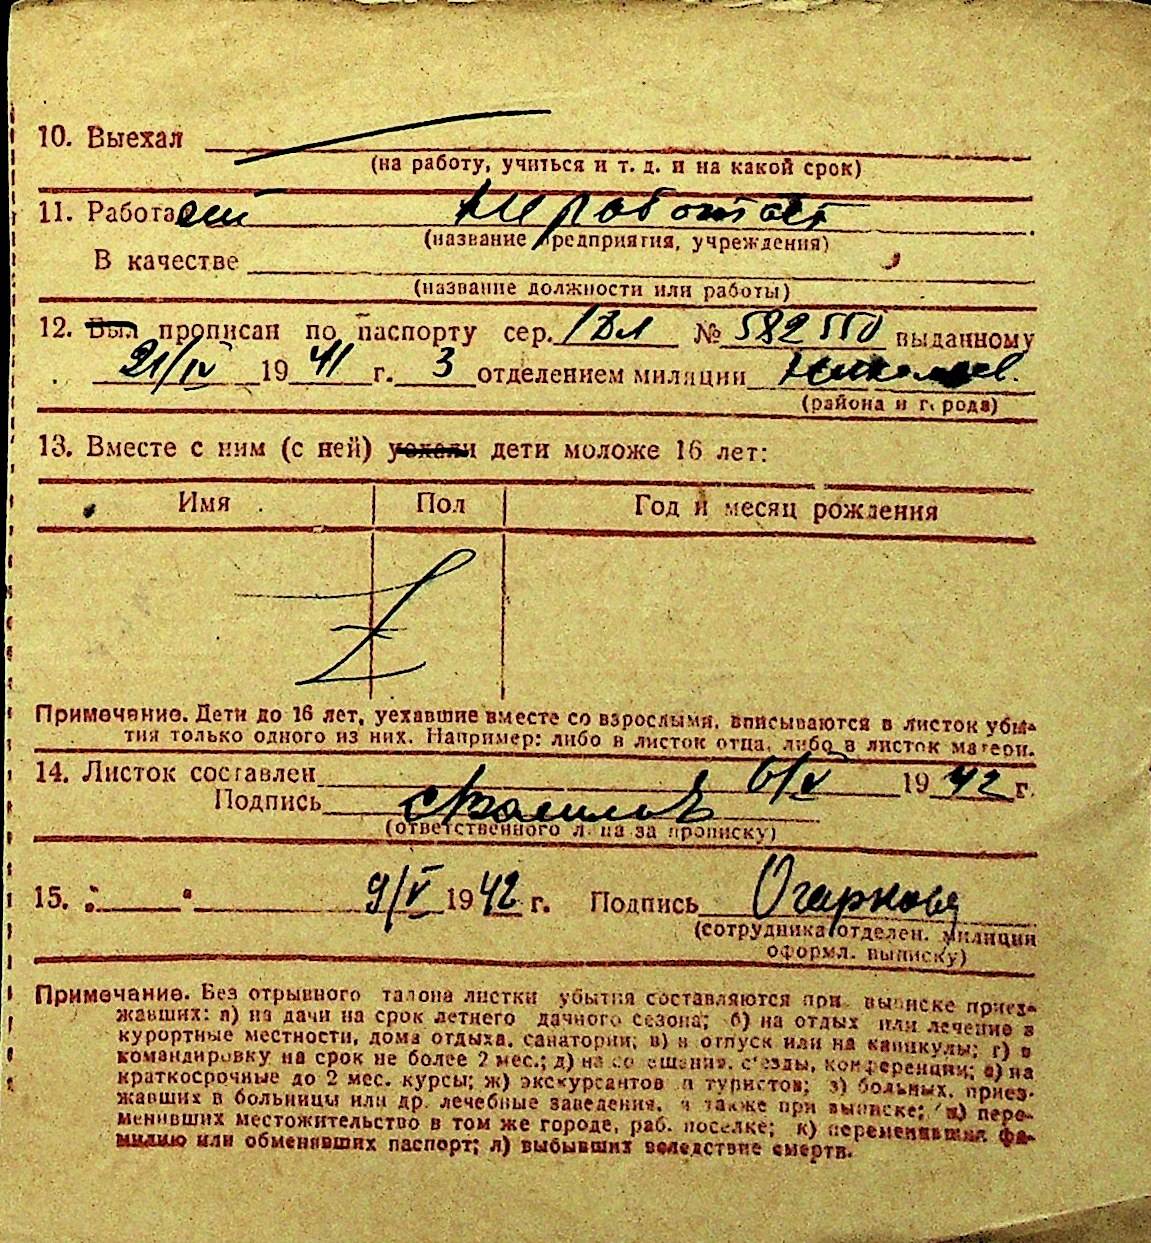 10. Выехал
(на работу, учиться и т. д. и на какой срок)
11. Работает не работает
(название предприятия, учреждения)
В качестве
(название должности или работы)
12. Был прописан по паспорту сер. № 582550 выданному
21/IV 1941 г. 3 отделением милиции
(района и города)
13. Вместе с ним (с ней) уехали дети моложе 16 лет:
Имя Пол Год и месяц рождения
Примечание. Дети до 16 лет, уехавшие вместе со взрослыми, вписываются в листок убы-
тия только одного из них. Например: либо в листок отца, либо в листок матери.
14. Листок составлен 6/V 1942 г.
Подпись
(ответственного лица за прописку)
15. „ “ 9/V 1942 г. Подпись Огаркова
(сотрудника отделен. милиции
оформл. выписку)
Примечание. Без отрывного талона листки убытия составляются при выписке приез-
жавших: а) на дачи на срок летнего дачного сезона; б) на отдых или лечение в
курортные местности, дома отдыха, санатории; в) в отпуск или на каникулы; г) в
командировку на срок не более 2 мес.; д) на совещания, съезды, конференции; е) на
краткосрочные до 2 мес. курсы; ж) экскурсантов и туристов; з) больных, приез-
жавших в больницы или др. лечебные заведения, а также при выписке; и) пере-
менивших местожительство в том же городе, раб. поселке; к) переменивших фа-
милию или обменявших паспорт; л) выбывших вследствие смерти.